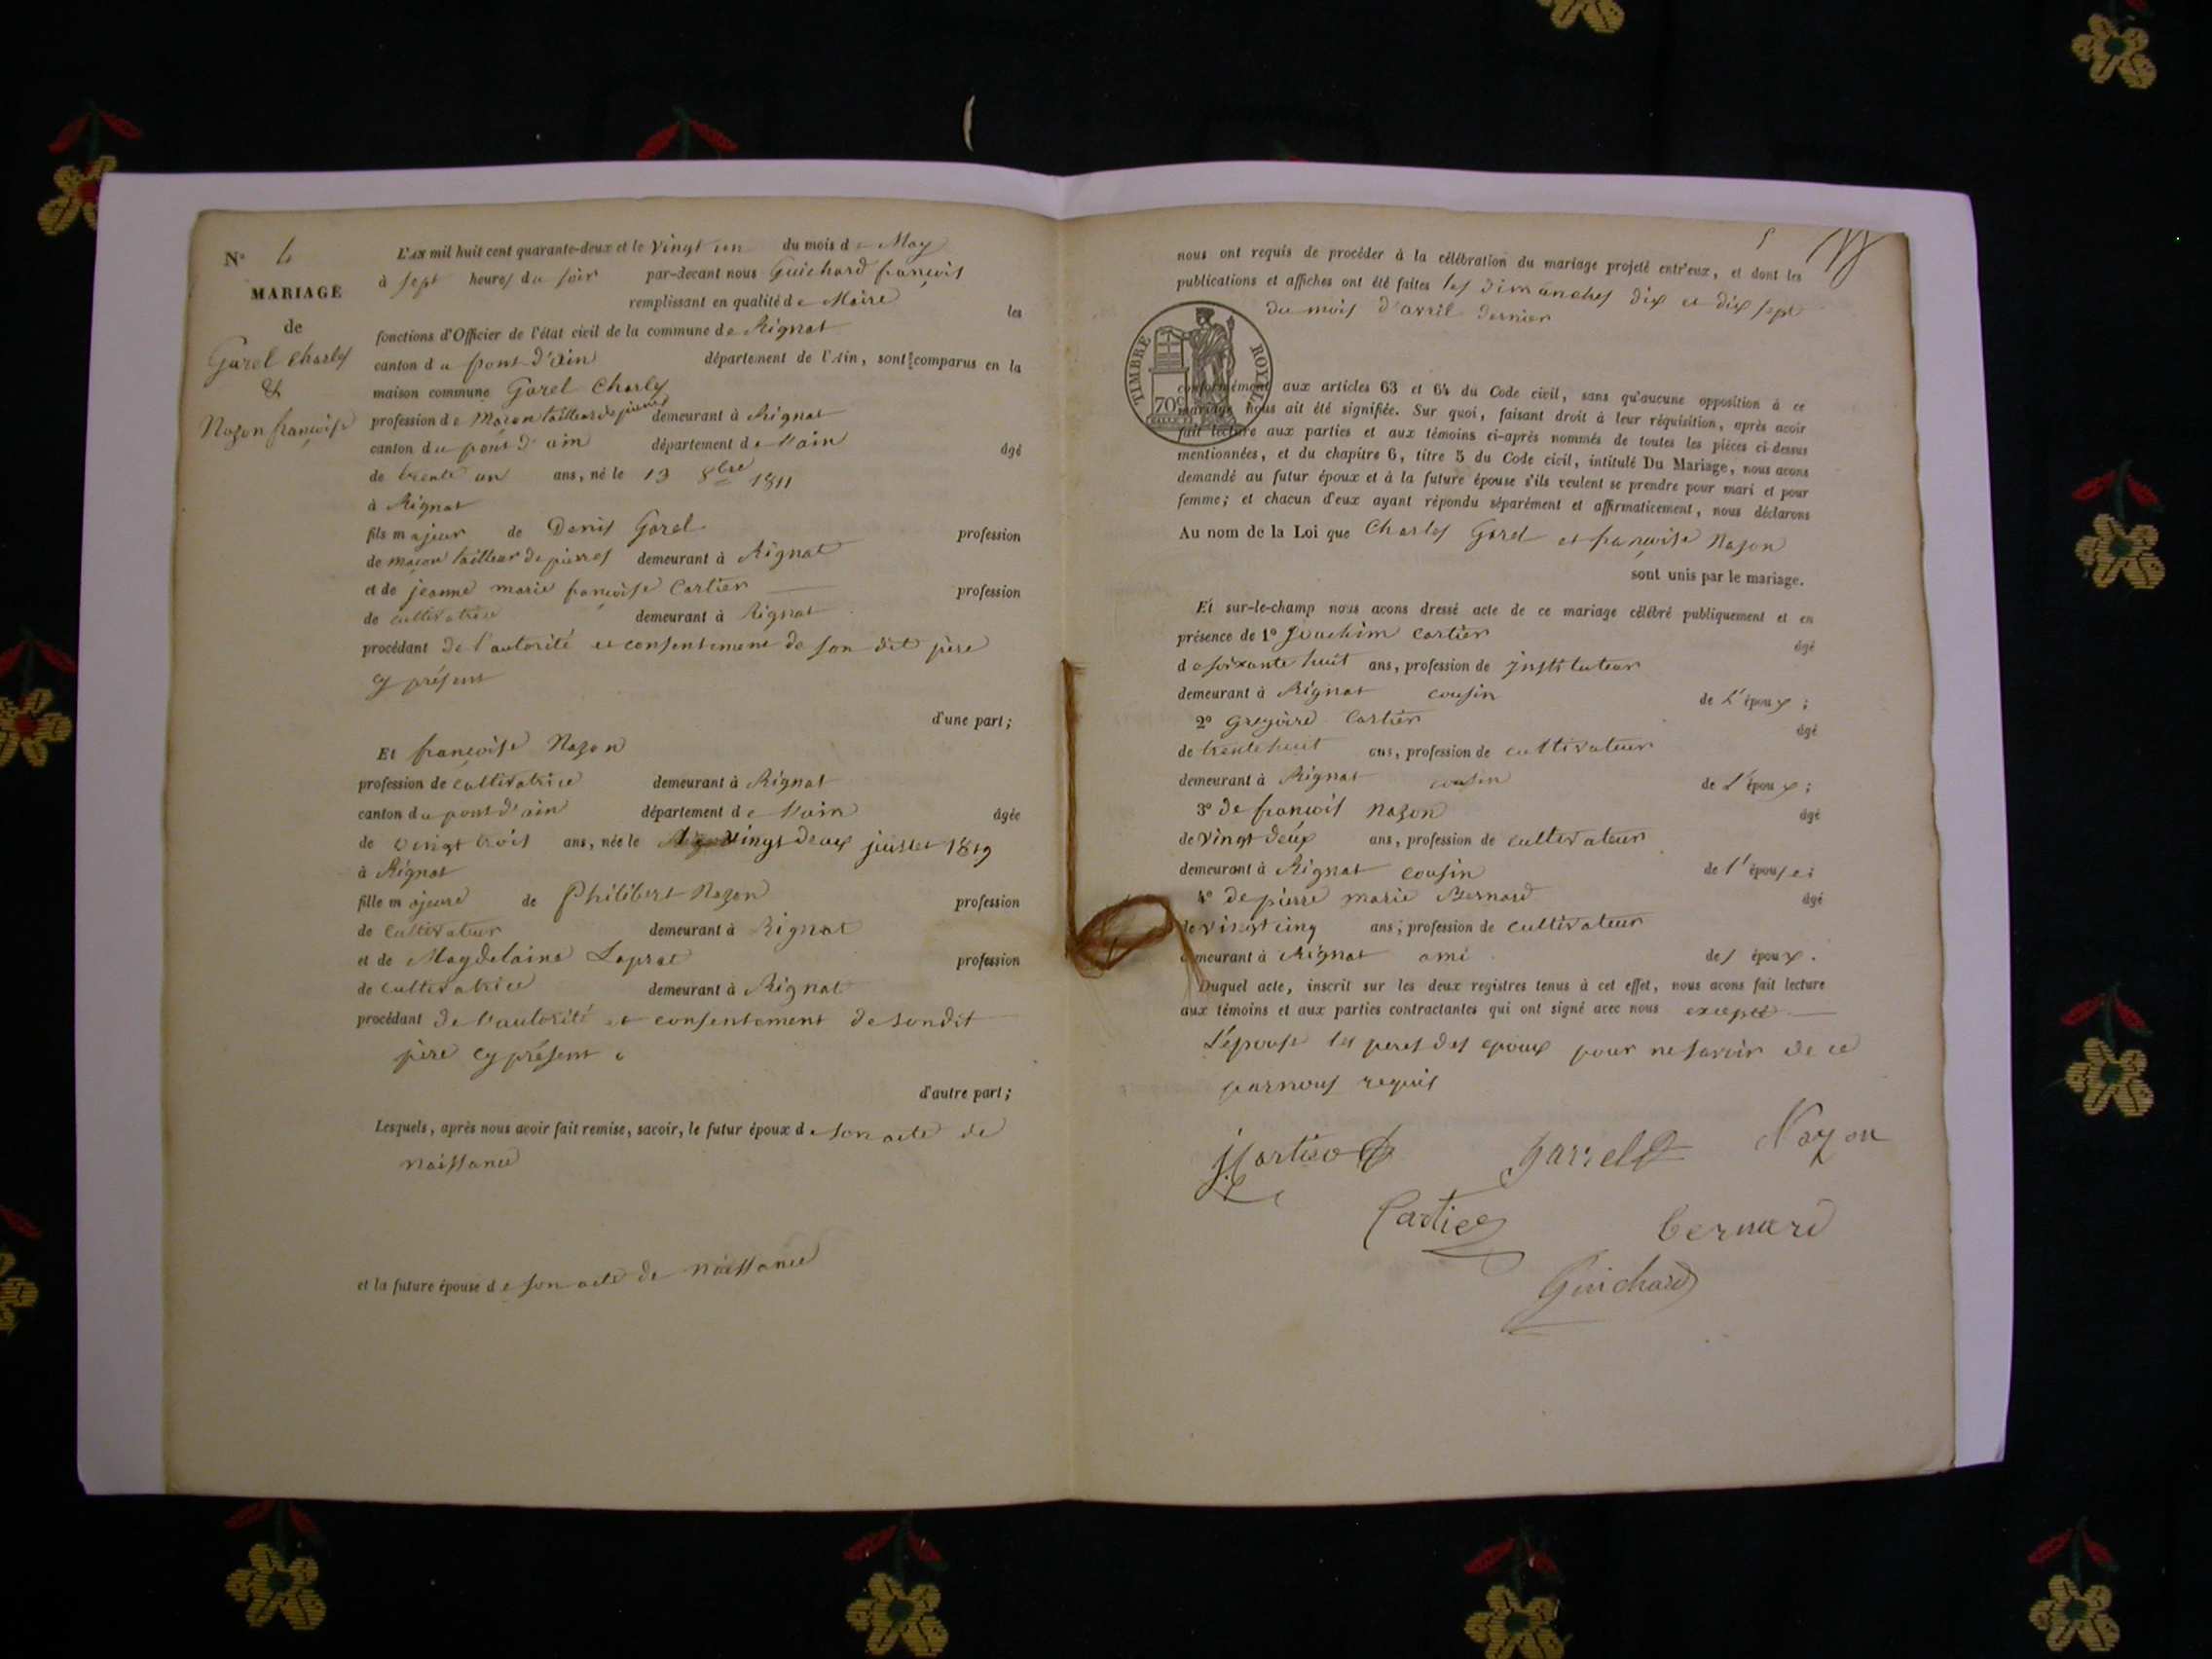 N° 4
MARIAGE
de
Garel Charles
&
Nazon françoise
L'AN mil huit cent quarante-deux et le vingt un du mois de May
à sept heures du soir par-devant nous Guichard françois
remplissant en qualité de Maire les
fonctions d'Officier de l'état civil de la commune de Rignat
canton du pont d'ain département de l'Ain, sont comparus en la
maison commune Garel Charles
profession de maçon tailleur de pierres demeurant à Rignat
canton du pont d'ain département de l'ain âgé
de trente un ans, né le 13 8bre 1811
à Rignat
fils majeur de Denis Garel profession
de maçon tailleur de pierres demeurant à Rignat
et de jeanne marie françoise Cartier profession
de cultivatrice demeurant à Rignat
procédant de l'autorité et consentement de son dit père
cy présent
d'une part;
Et françoise Nazon
profession de cultivatrice demeurant à Rignat
canton du pont d'ain département de l'ain âgée
de vingt trois ans, née le vingt deux juillet 1819
à Rignat
fille majeure de Philibert Nazon profession
de cultivateur demeurant à Rignat
et de Magdelaine Laprat profession
de cultivatrice demeurant à Rignat
procédant de l'autorité et consentement de sondit
père cy présent
d'autre part;
Lesquels, après nous avoir fait remise, savoir, le futur époux de son acte de
naissance
et la future épouse de son acte de naissance
5
nous ont requis de procéder à la célébration du mariage projeté entr'eux, et dont les
publications et affiches ont été faites les dimanches dix et dix sept
du mois d'avril dernier
TIMBRE ROYAL
70c
conformément aux articles 63 et 64 du Code civil, sans qu'aucune opposition à ce
mariage nous ait été signifiée. Sur quoi, faisant droit à leur réquisition, après avoir
fait lecture aux parties et aux témoins ci-après nommés de toutes les pièces ci-dessus
mentionnées, et du chapitre 6, titre 5 du Code civil, intitulé Du Mariage, nous avons
demandé au futur époux et à la future épouse s'ils veulent se prendre pour mari et pour
femme; et chacun d'eux ayant répondu séparément et affirmativement, nous déclarons
Au nom de la Loi que Charles Garel et françoise Nazon
sont unis par le mariage.
Et sur-le-champ nous avons dressé acte de ce mariage célébré publiquement et en
présence de 1° Joachim Cartier âgé
de soixante huit ans, profession de instituteur
demeurant à Rignat cousin de L'époux;
2° gregoire Cartier âgé
de trente huit ans, profession de cultivateur
demeurant à Rignat cousin de L'époux;
3° de françois Nazon âgé
de vingt deux ans, profession de cultivateur
demeurant à Rignat cousin de l'épouse;
4° de pierre marie Bernard âgé
de vingt cinq ans; profession de cultivateur
demeurant à Rignat ami des époux.
Duquel acte, inscrit sur les deux registres tenus à cet effet, nous avons fait lecture
aux témoins et aux parties contractantes qui ont signé avec nous excepté
L'épouse les peres des epoux pour ne savoir de ce
par nous requis
garrel Nazon
Cartier bernard
Guichard